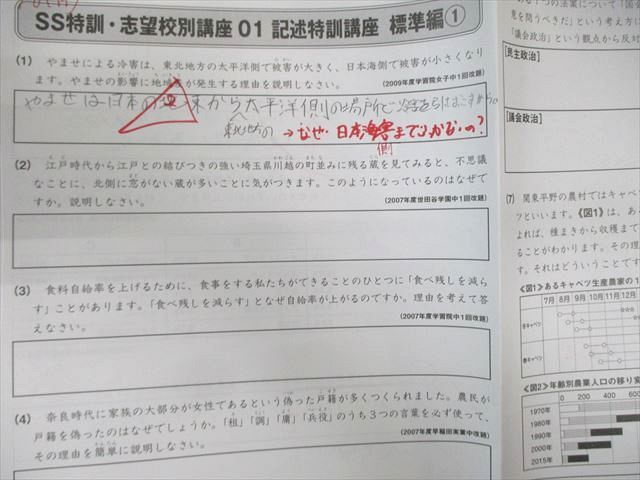 SS特訓・志望校別講座 01 記述特訓講座 標準編①
(1) やませによる冷害は、東北地方の太平洋側で被害が大きく、日本海側で被害が小さくなり
ます。やませの影響に地域差が発生する理由を説明しなさい。
(2009年度学習院女子中1回改題)
やませは日本の
から太平洋側の場所で
東北地方の
→なぜ・日本海
側
までいかないの?
(2) 江戸時代から江戸との結びつきの強い埼玉県川越の町並みに残る蔵を見てみると、不思議
なことに、北側に窓がない蔵が多いことに気がつきます。このようになっているのはなぜで
すか。説明しなさい。
(2007年度世田谷学園中1回改題)
(3) 食料自給率を上げるために、食事をする私たちができることのひとつに「食べ残しを減ら
す」ことがあります。「食べ残しを減らす」となぜ自給率が上がるのですか。理由を考えて答
えなさい。
(2007年度学習院中1回改題)
(4) 奈良時代に家族の大部分が女性であるという偽った戸籍が多くつくられました。農民が
戸籍を偽ったのはなぜでしょうか。「租」「調」「庸」「兵役」のうち3つの言葉を必ず使って、
その理由を簡単に説明しなさい。
(2007年度早稲田実業中改題)
息を問うべきだ」という考え方に
「議会政治」という観点から反対
[民主政治]
[議会政治]
(7) 関東平野の農村ではキャベツ
ツといいます。《図1》は、あ
よれば、種まきから収穫まで
ることがわかります。その理
す。それはどういうことです
《図1》あるキャベツ生産農家の1
7月 8月 9月 10月 11月 12月
冬キャベツ
春キャベツ
《図2》年齢別農業人口の移り変
0 200 400 600
1970年
1980年
1990年
2000年
2015年